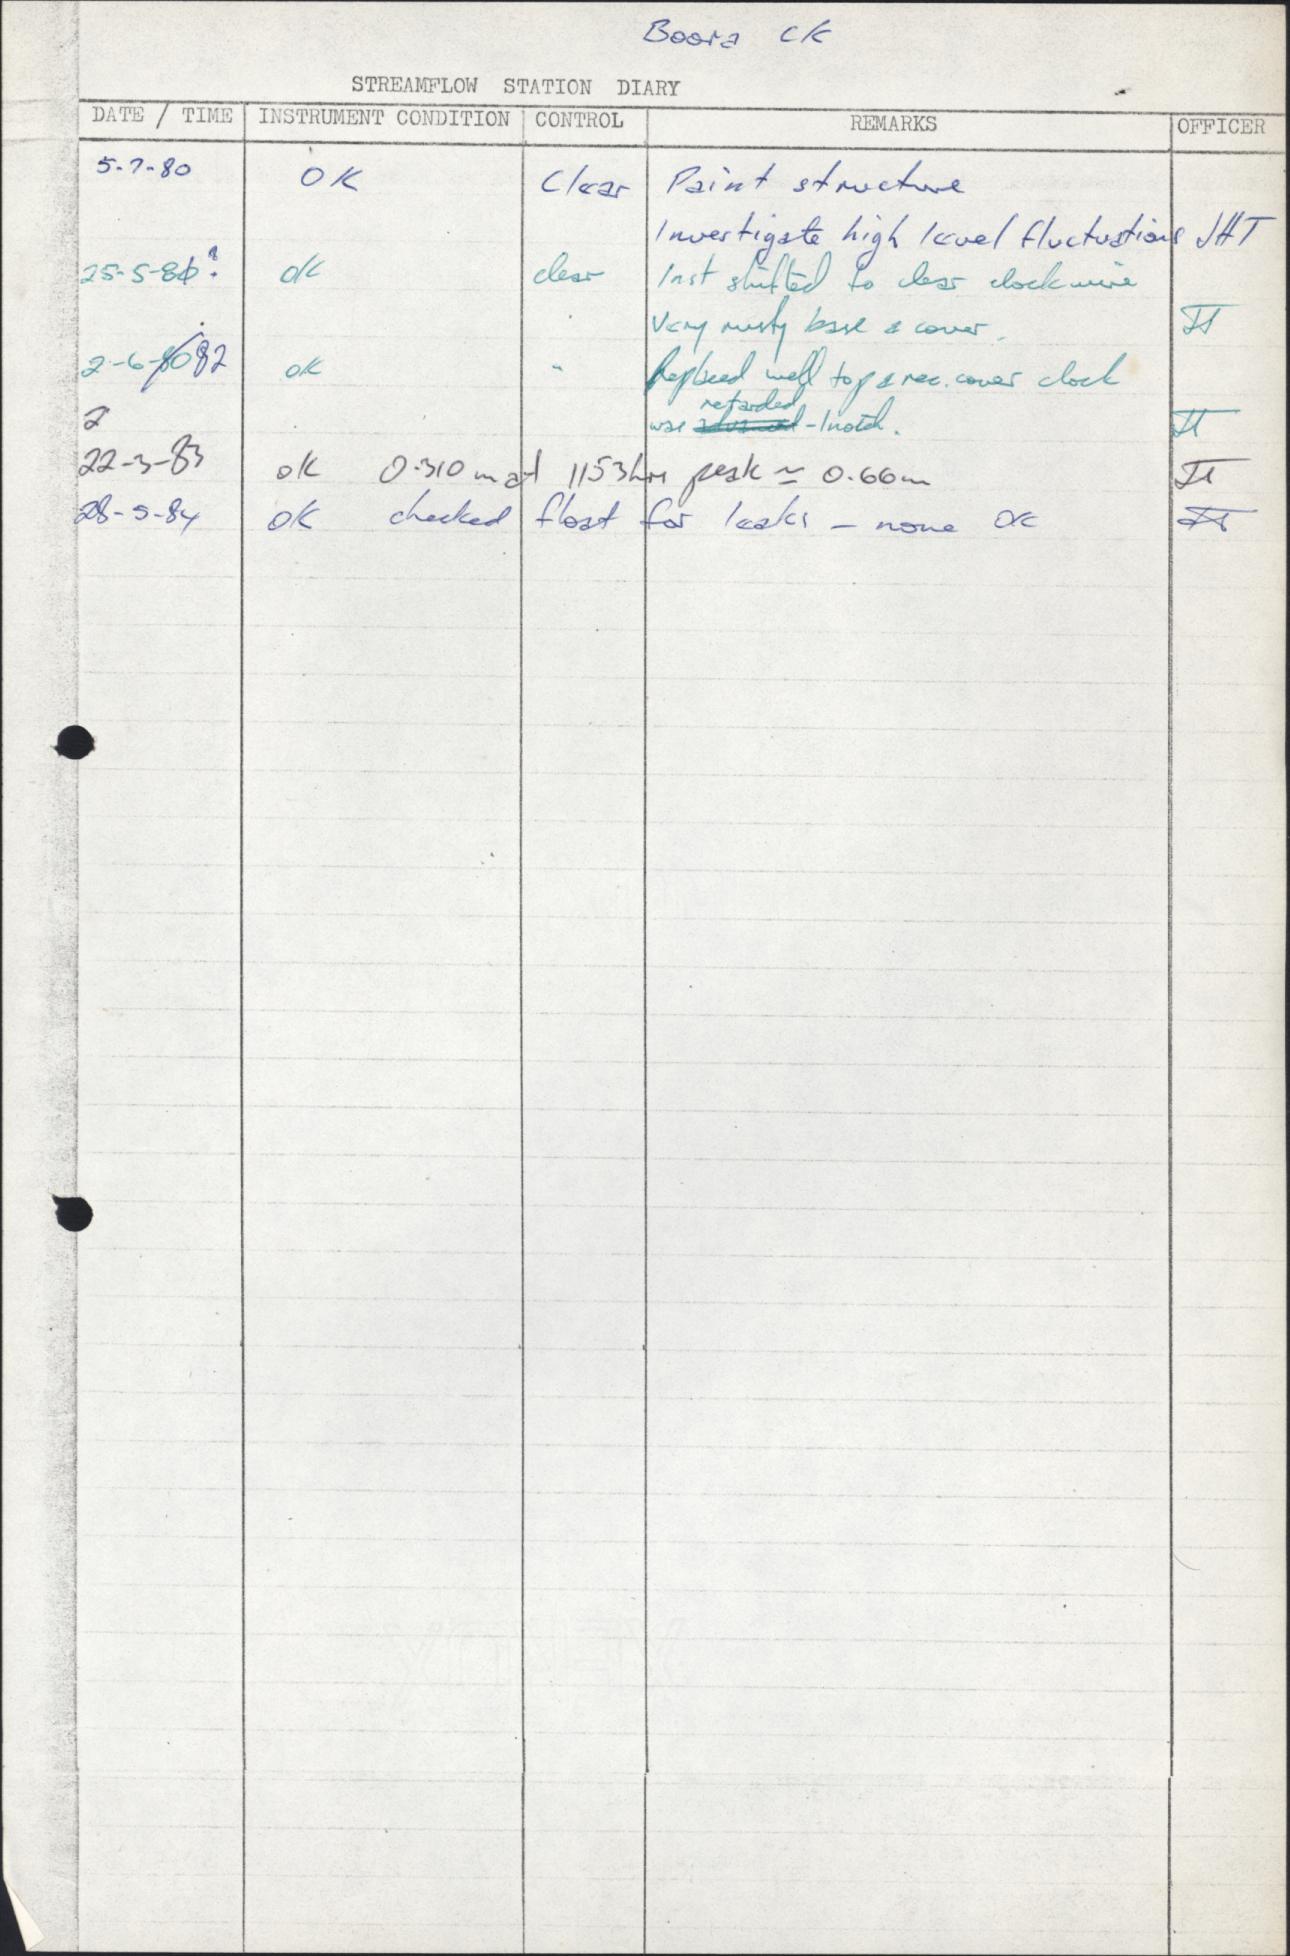 Boora Ck
STREAMFLOW STATION DIARY
DATE / TIME INSTRUMENT CONDITION CONTROL REMARKS OFFICER
5-7-80 OK Clear Paint structure
Investigate high level fluctuations JHT
25-5-80? OK clear Inst shifted to clear clock wire
Very rusty base & cover. JT
2-6-80 82 OK " Replaced well top & rec. cover clock
retarded
2 was advanced - 1 notch. JT
22-3-83 OK 0.310 m at 1153hrs peak ≃ 0.66m JT
28-5-84 OK checked float for leaks - none OK JT